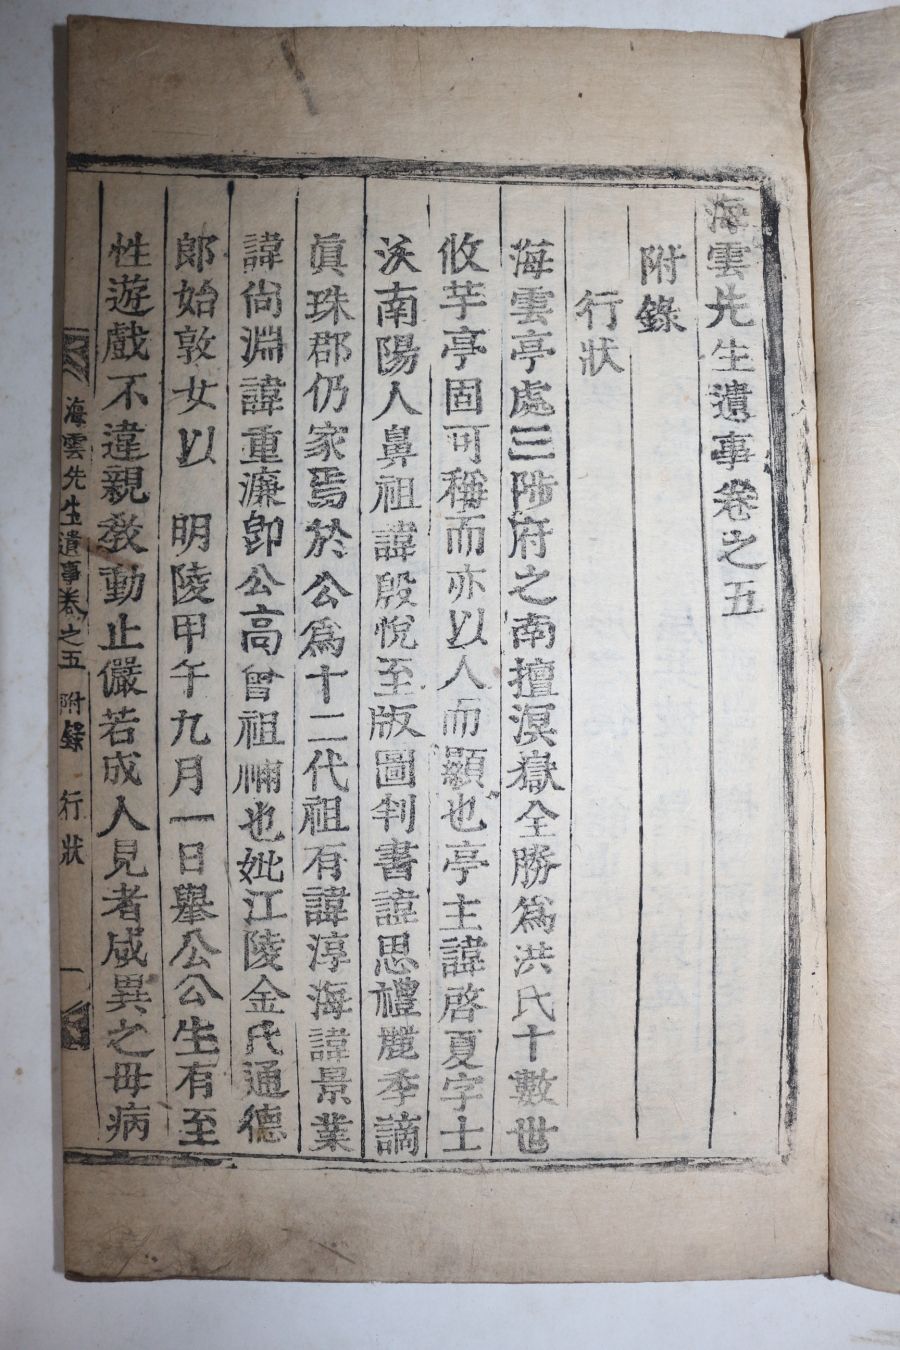 海雲先生遺事卷之五
附錄
行狀
海雲亭處三陟府之南擅溟嶽全勝爲洪氏十數世
攸芋亭固可稱而亦以人而顯也亭主諱啓夏字士
浹南陽人鼻祖諱殷悅至版圖判書諱思禮麗季謫
眞珠郡仍家焉於公爲十二代祖有諱淳海諱景業
諱尙淵諱重濂卽公高曾祖禰也妣江陵金氏通德
郞始敦女以 明陵甲午九月一日擧公公生有至
性遊戲不違親敎動止儼若成人見者咸異之毋病
海雲先生遺事卷之五 附錄 行狀 一